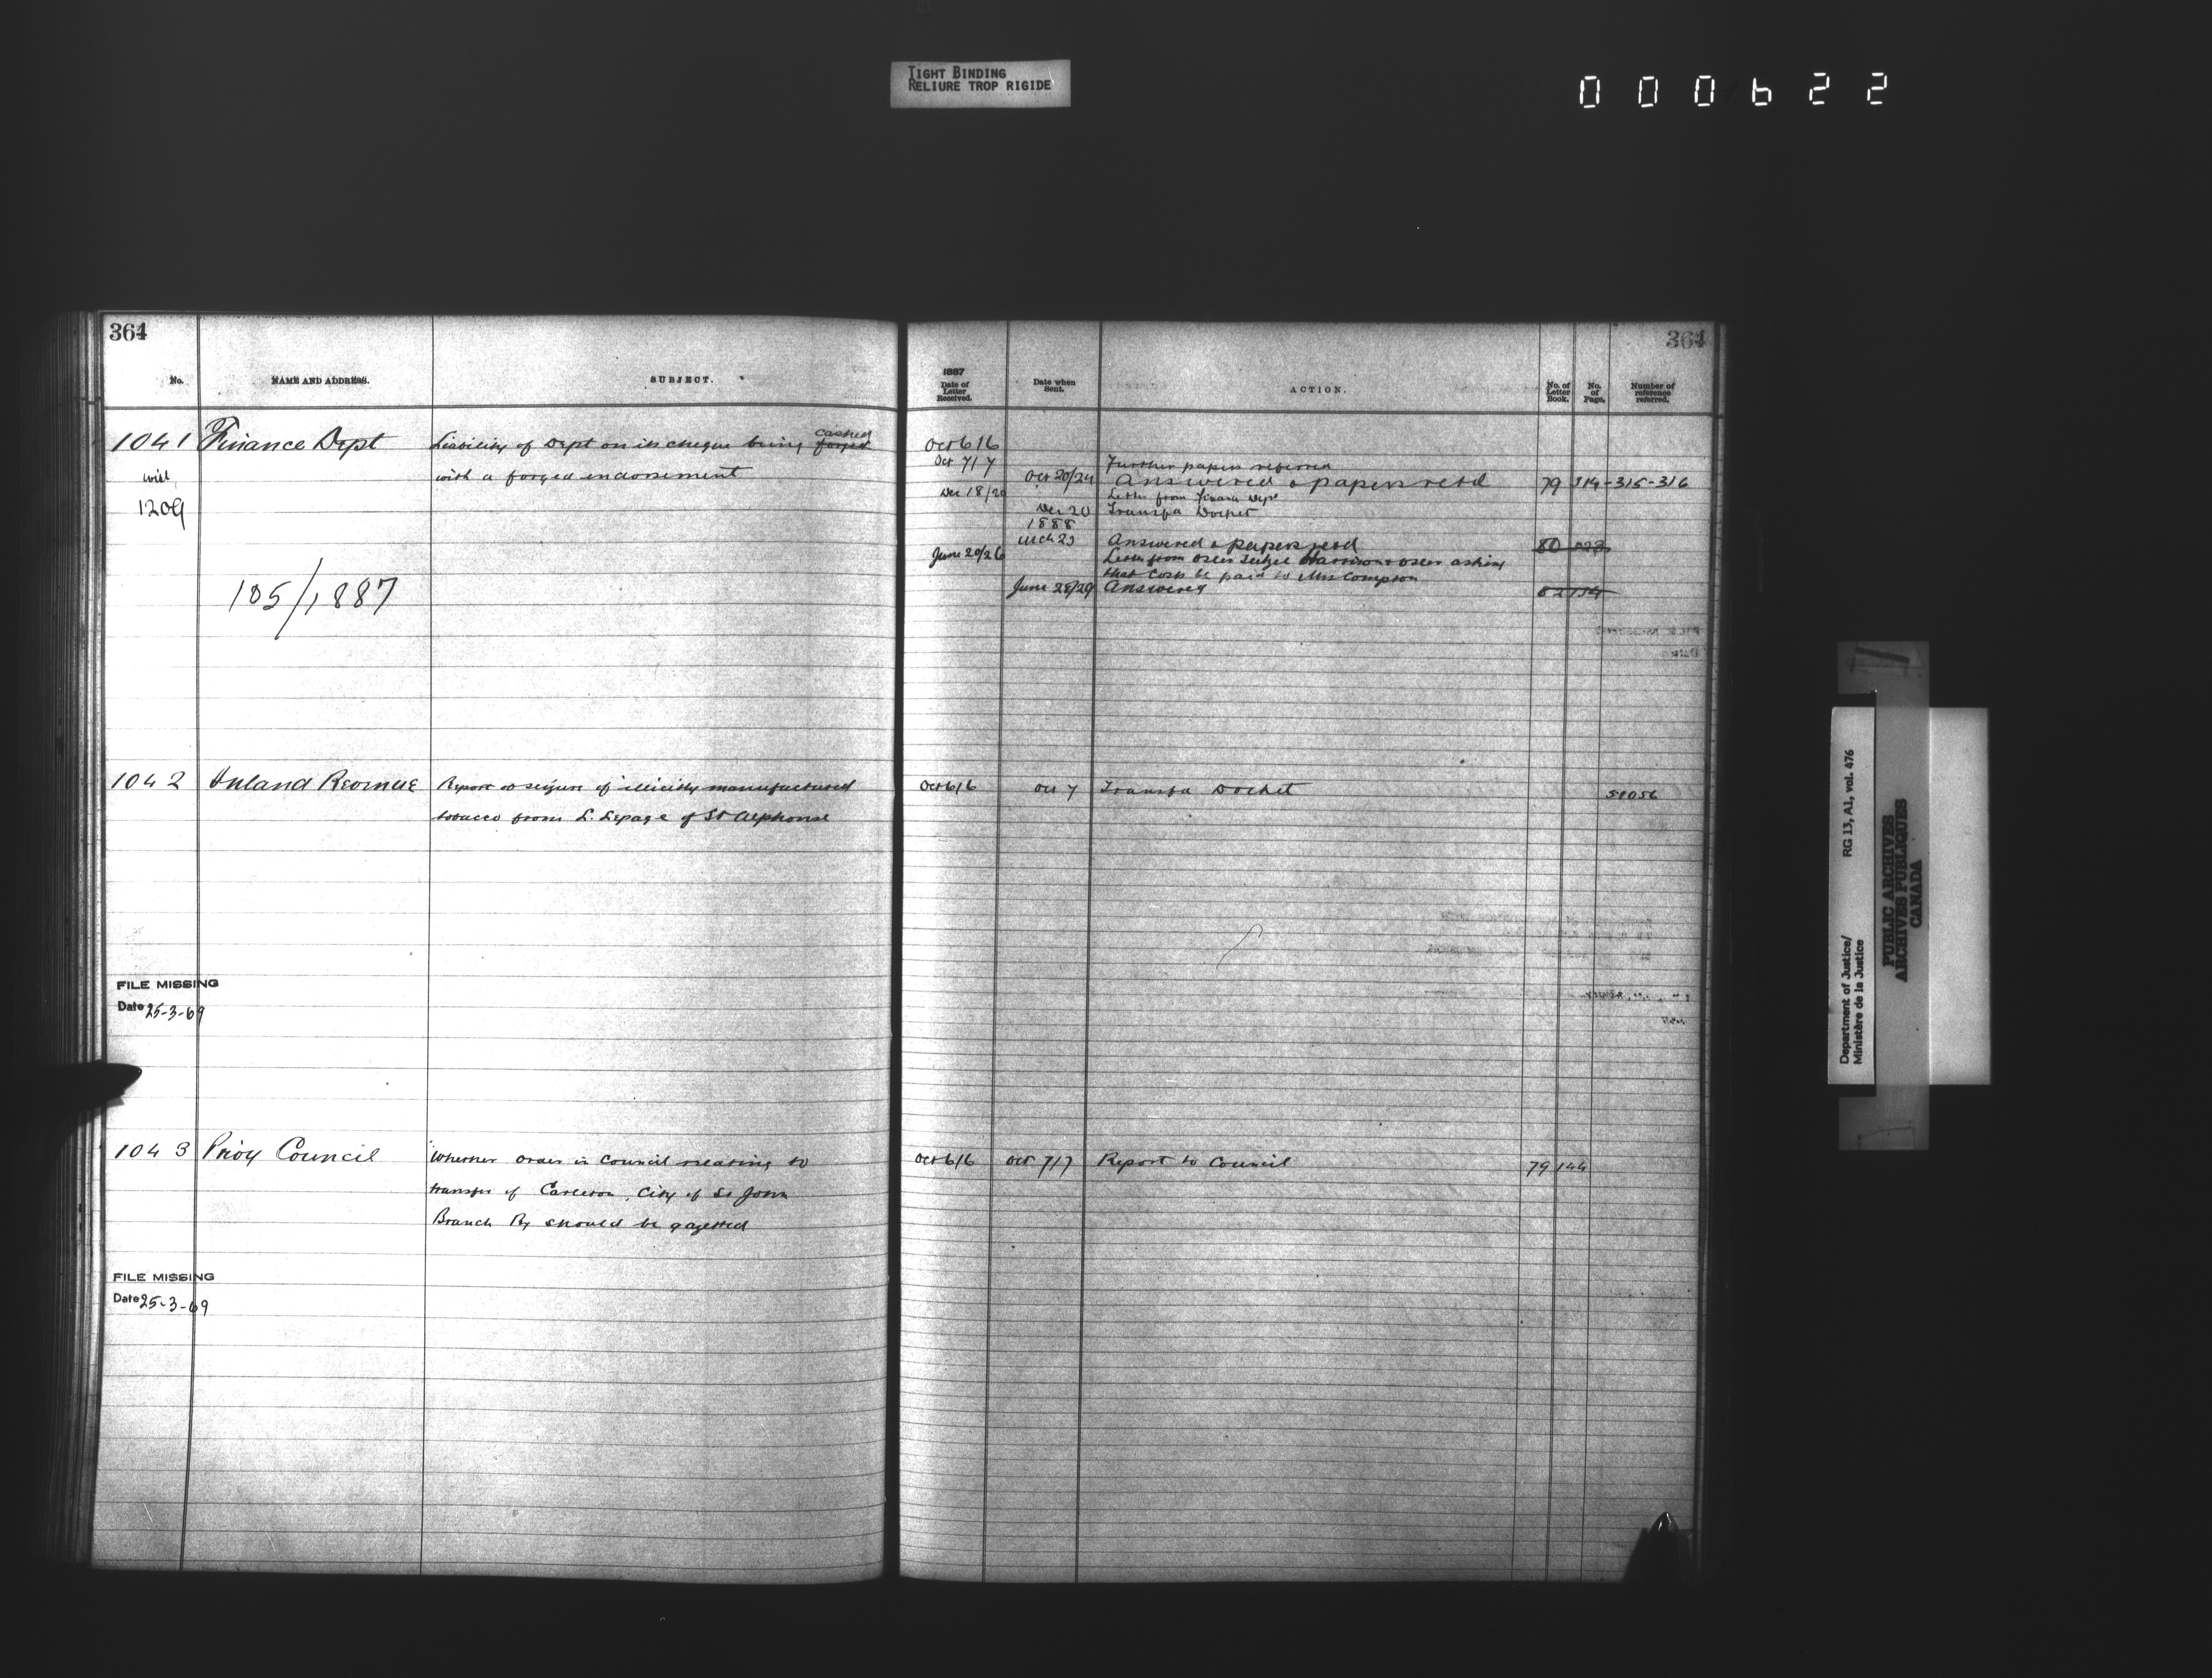 TIGHT BINDING
RELIURE TROP RIGIDE
000622
364
No.
NAME AND ADDRESS.
SUBJECT.
1041 Finance Dept Liability of Dept on its cheque being forged cashed
with a forged endorsement
with
1209
105/1887
1042 Inland Revenue Report re seizure of illicitly manufactured
tobacco from L. Lepage of St Alphonse
FILE MISSING
Date 25-3-69
1043 Privy Council Whether order in Council relating to
transfer of Carleton, City of St John
Branch Ry should be gazetted
FILE MISSING
Date 25-3-69
364
1887
Date of
Letter
Received.
Date when
Sent.
ACTION.
No. of
Letter
Book.
No.
of
Page.
Number of
reference
referred.
Oct 6/6
Oct 7/7 Further papers referred
Oct 20/24 Answered & papers retd 79 314-315-316
Dec 18/20 Letter from Finance Dept
Dec 20 Transfer Docket
1888
Mch 23 Answered & papers retd 80
June 20/26 Letter from Osler Teetzel Harrison & Osler asking
that Costs be paid to Mrs Compson
June 28/29 Answered 82
Oct 6/6 Oct 7 Transfer Docket
Oct 6/6 Oct 7/7 Report to Council 79 144
Department of Justice/ RG 13, A1, vol. 476
Ministère de la Justice
PUBLIC ARCHIVES
ARCHIVES PUBLIQUES
CANADA